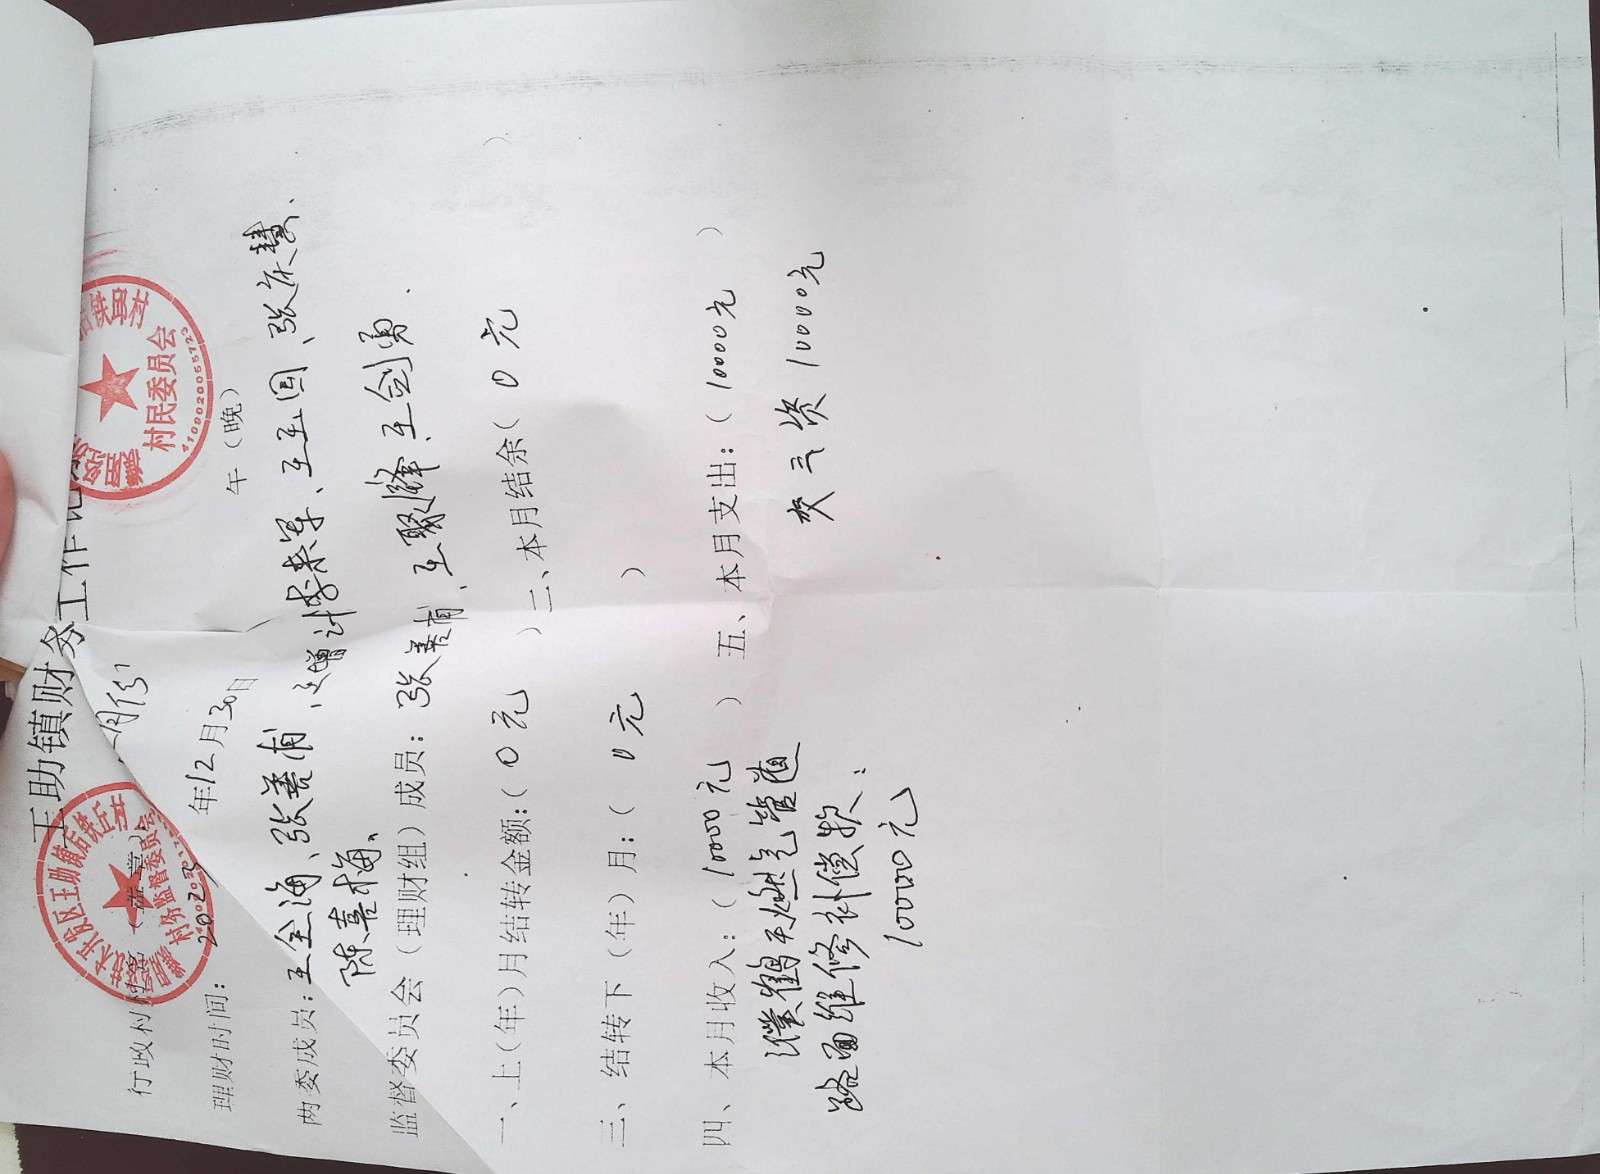 王助镇财务工作记
月份
行政村村名（盖章）
理财时间: 2023年12月30日 午（晚）
两委成员: 王全海、张善甫、王增计、李来军、王玉国、张庆慧、
陈喜梅。
监督委员会（理财组）成员: 张善甫、王聚峰、王剑勇.
一、上(年)月结转金额:（0元 ）二、本月结余（0元 ）
三、结转下（年）月:（0元 ）
四、本月收入:（10000元 ）五、本月支出:（10000元 ）
濮鹤天燃气管道 交三资10000元
路面维修补偿款:
10000元
铁邱村
村民委员会
4100020055723
技术开发区王助镇后铁丘村
村务监督委员会